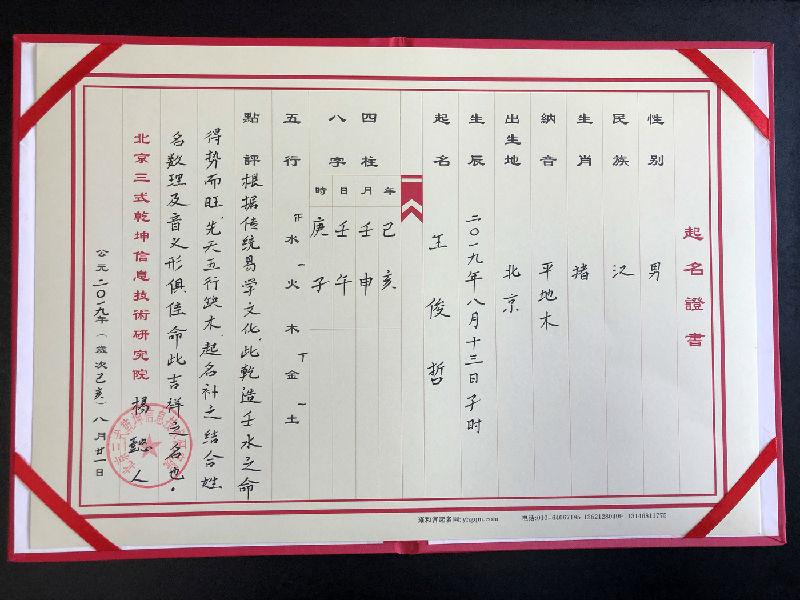 起名證書
性别 男
民族 汉
生肖 猪
納音 平地木
出生地 北京
生辰 二〇一九年八月十三日子时
起名 王俊哲
四柱
八字
年 己亥
月 壬申
日 壬午
時 庚子
五行 水 一火 木 丅金 一土
點評 根据传统易学文化,此乾造壬水之命
得势而旺,先天五行缺木,起名补之结合姓
名数理及音义形俱佳,命此吉祥之名也。
北京三式乾坤信息技術研究院 杨懿人
公元二〇一九年(歲次己亥)八月廿一日